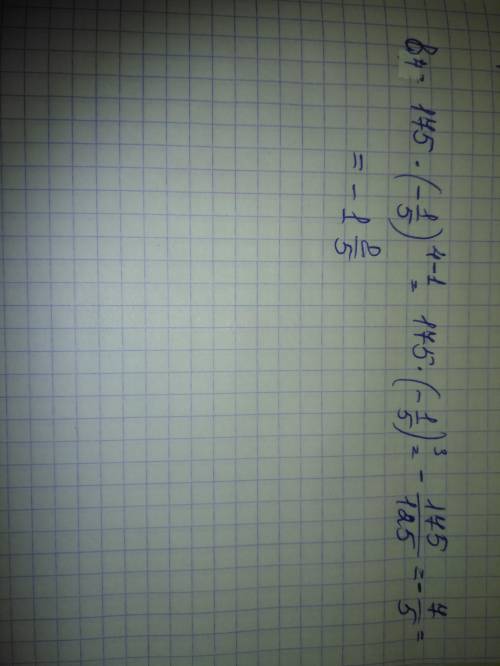 b₄ = 175 · (-1/5)⁴⁻¹ = 175 · (-1/5)³ = -175/125 = -7/5 =
= -1 2/5